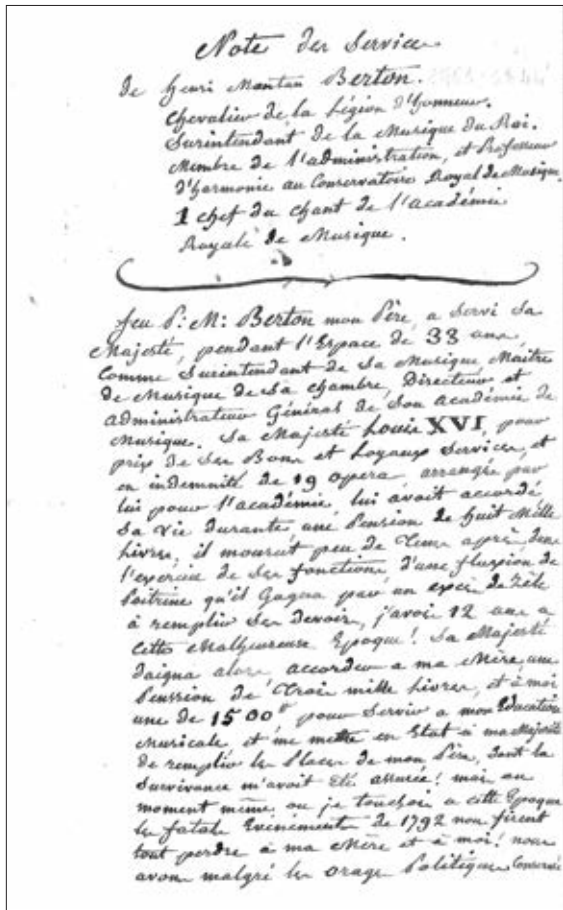 Note des Services
de henri Montan BERTON.
Chevalier de la Légion d'honneur.
Surintendant de la Musique du Roi.
Membre de l'administration, et Professeur
d'harmonie au Conservatoire Royal de Musique.
1 chef du chant de l'académie
Royale de Musique.
feu P: M: BERTON mon Père, a servi sa
Majesté, pendant l'Espace de 33 ans,
Comme Surintendant de sa Musique Maitre
de Musique de sa chambre, Directeur et
administrateur Général de son académie de
Musique. Sa Majesté Louis XVI, pour
prix de ses Bons et Loyaux services, et
en indemnité de 19 opera arrangés par
lui pour l'académie, lui avoit accordé
sa vie durante, une Pension de huit Mille
Livres, il mourut peu de tems après, dans
l'exercice de ses fonctions, d'une fluxion de
Poitrine qu'il Gagna par un excès de zèle
à remplir ses devoirs, j'avois 12 ans a
cette Malheureuse Epoque! Sa Majesté
daigna alors, accorder a ma Mère, une
Pension de Trois mille Livres, et à moi
une de 1500 pour servir a mon Education
Musicale, et me mettre en Etat à ma Majorité
de remplir les Places de mon Père, dont la
Survivance m'avoit été assurée! mais au
moment même ou je touchois a cette Epoque
les fatals Evénements de 1792 nous firent
tout perdre à ma Mère et à moi! nous
avons malgré les orages Politiques Conservé